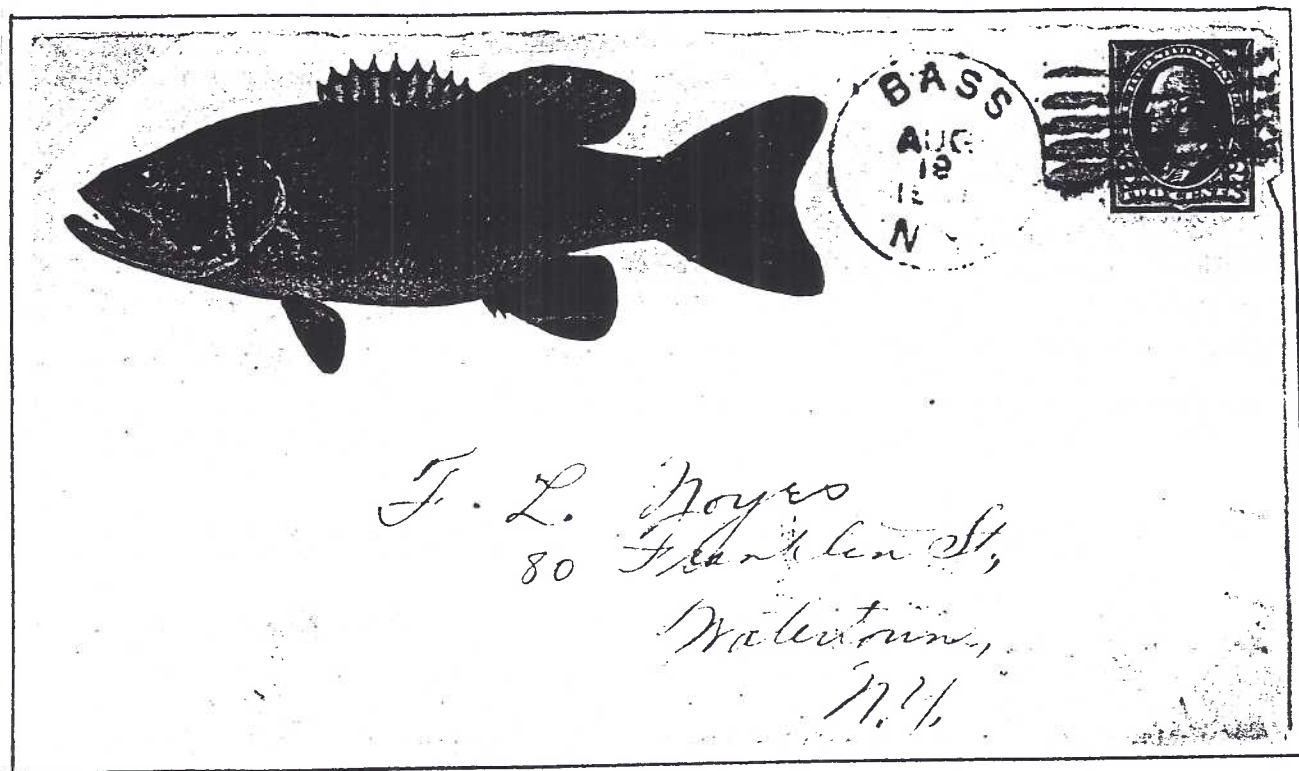 BASS
AUG
18
N
TWO CENTS
F. L. Noyes
80 Franklin St,
Watertown,
N.Y.